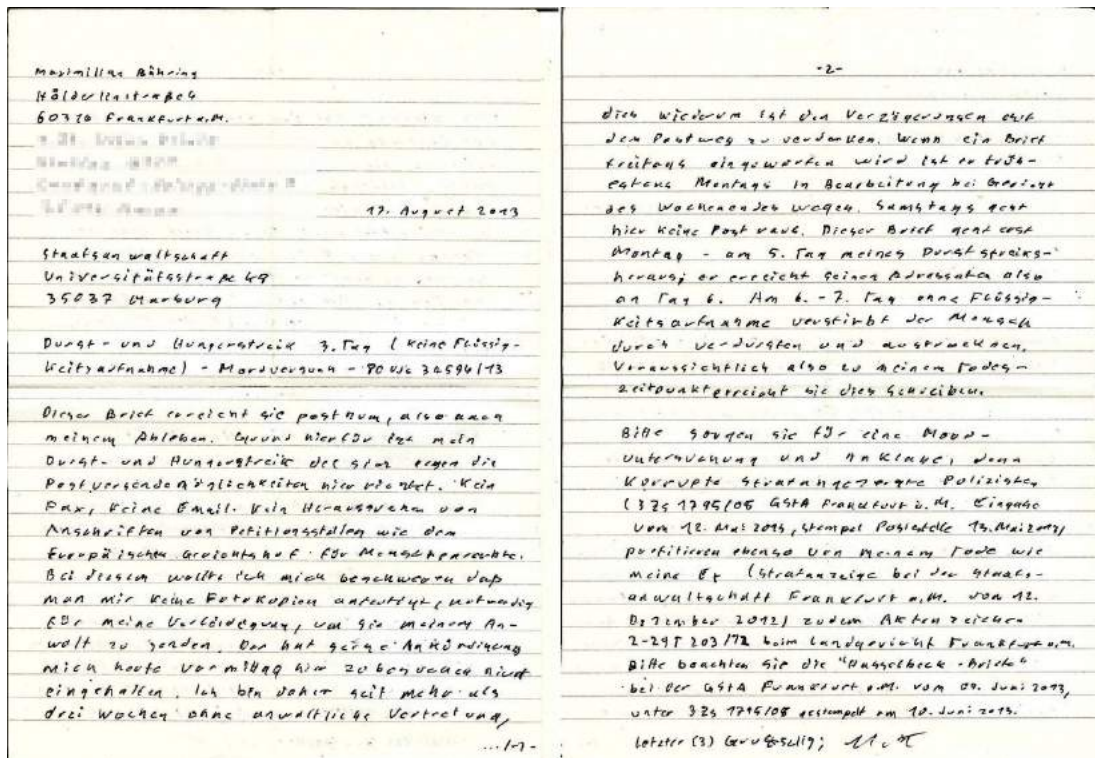 Maximilian Bähring
Hölderlinstraße 4
60316 Frankfurt a.M.
17. August 2013
Staatsanwaltschaft
Universitätsstraße 48
35037 Marburg
Durst- und Hungerstreik 3. Tag (keine Flüssig-
keitsaufnahme) - Mordversuch -
Dieser Brief erreicht sie posthum, also nach
meinem Ableben. Grund hierfür ist mein
Durst- und Hungerstreik der sich gegen die
Postversendemöglichkeiten hier richtet. Kein
Fax, keine Email. Kein Heraussuchen von
Anschriften von Petitionsstellen wie dem
Europäischen Gerichtshof für Menschenrechte.
Bei diesem wollte ich mich beschweren daß
man mir keine Fotokopien anfertigt, notwendig
für meine Verteidigung, um sie meinem An-
walt zu senden. Der hat seine Ankündigung
mich heute vormittag hier zu besuchen nicht
eingehalten. Ich bin daher seit mehr als
drei Wochen ohne anwaltliche Vertretung,
-2-
dies wiederum ist den Verzögerungen auf
dem Postweg zu verdanken. Wenn ein Brief
freitags eingeworfen wird ist er früh-
estens Montags in Bearbeitung bei Gericht
des Wochenendes wegen. Samstags geht
hier keine Post raus. Dieser Brief geht erst
Montag - am 5. Tag meines Durststreiks -
heraus, er erreicht seinen Adressaten also
an Tag 6. Am 6. - 7. Tag ohne Flüssig-
keitsaufnahme verstirbt der Mensch
durch verdursten und austrocknen.
Voraussichtlich also zu meinem Todes-
zeitpunkt erreicht sie dies Schreiben.
Bitte sorgen sie für eine Mord-
untersuchung und Anklage, denn
korrupte strafangezeigte Polizisten
(3 Zs 1795/08 GStA Frankfurt a.M. Eingabe
vom 12. Mai 2013, Stempel Poststelle 13. Mai 2013)
profitieren ebenso von meinem Tode wie
meine Ex (Strafanzeige bei der Staats-
anwaltschaft Frankfurt a.M. vom 12.
Dezember 2012) zudem Aktenzeichen
beim Landgericht Frankfurt a.M.
Bitte beachten sie die "Hasselbeck-Briefe"
bei der GStA Frankfurt a.M. vom 09. Juni 2013,
unter 3 Zs 1795/08 gestempelt am 10. Juni 2013.
Letzter (3)